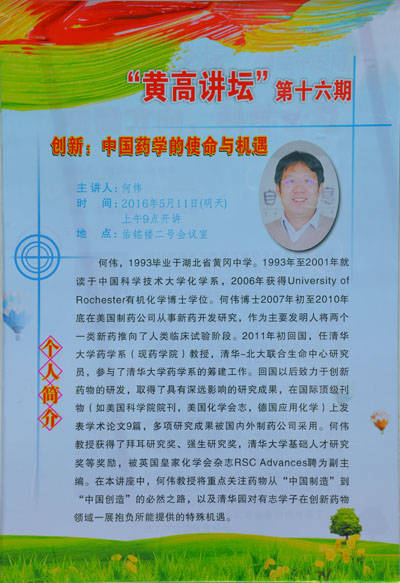 “黄高讲坛”第十六期
创新：中国药学的使命与机遇
主讲人：何伟
时　间：2016年5月11日(明天)
上午9点开讲
地　点：佑铭楼二号会议室
个人简介
何伟，1993毕业于湖北省黄冈中学。1993年至2001年就
读于中国科学技术大学化学系，2006年获得University of
Rochester有机化学博士学位。何伟博士2007年初至2010年
底在美国制药公司从事新药开发研究，作为主要发明人将两个
一类新药推向了人类临床试验阶段。2011年初回国，任清华
大学药学系（现药学院）教授，清华-北大联合生命中心研究
员，参与了清华大学药学系的筹建工作。回国以后致力于创新
药物的研发，取得了具有深远影响的研究成果，在国际顶级刊
物（如美国科学院院刊，美国化学会志，德国应用化学）上发
表学术论文9篇，多项研究成果被国内外制药公司采用。何伟
教授获得了拜耳研究奖、强生研究奖，清华大学基础人才研究
奖等奖励，被英国皇家化学会杂志RSC Advances聘为副主
编。在本讲座中，何伟教授将重点关注药物从“中国制造”到
“中国创造”的必然之路，以及清华园对有志学子在创新药物
领域一展抱负所能提供的特殊机遇。